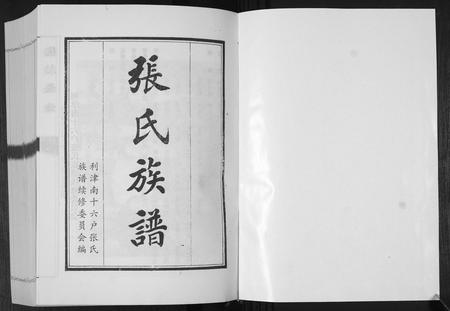 張氏族譜
利津南十六户张氏
族谱续修委員会編